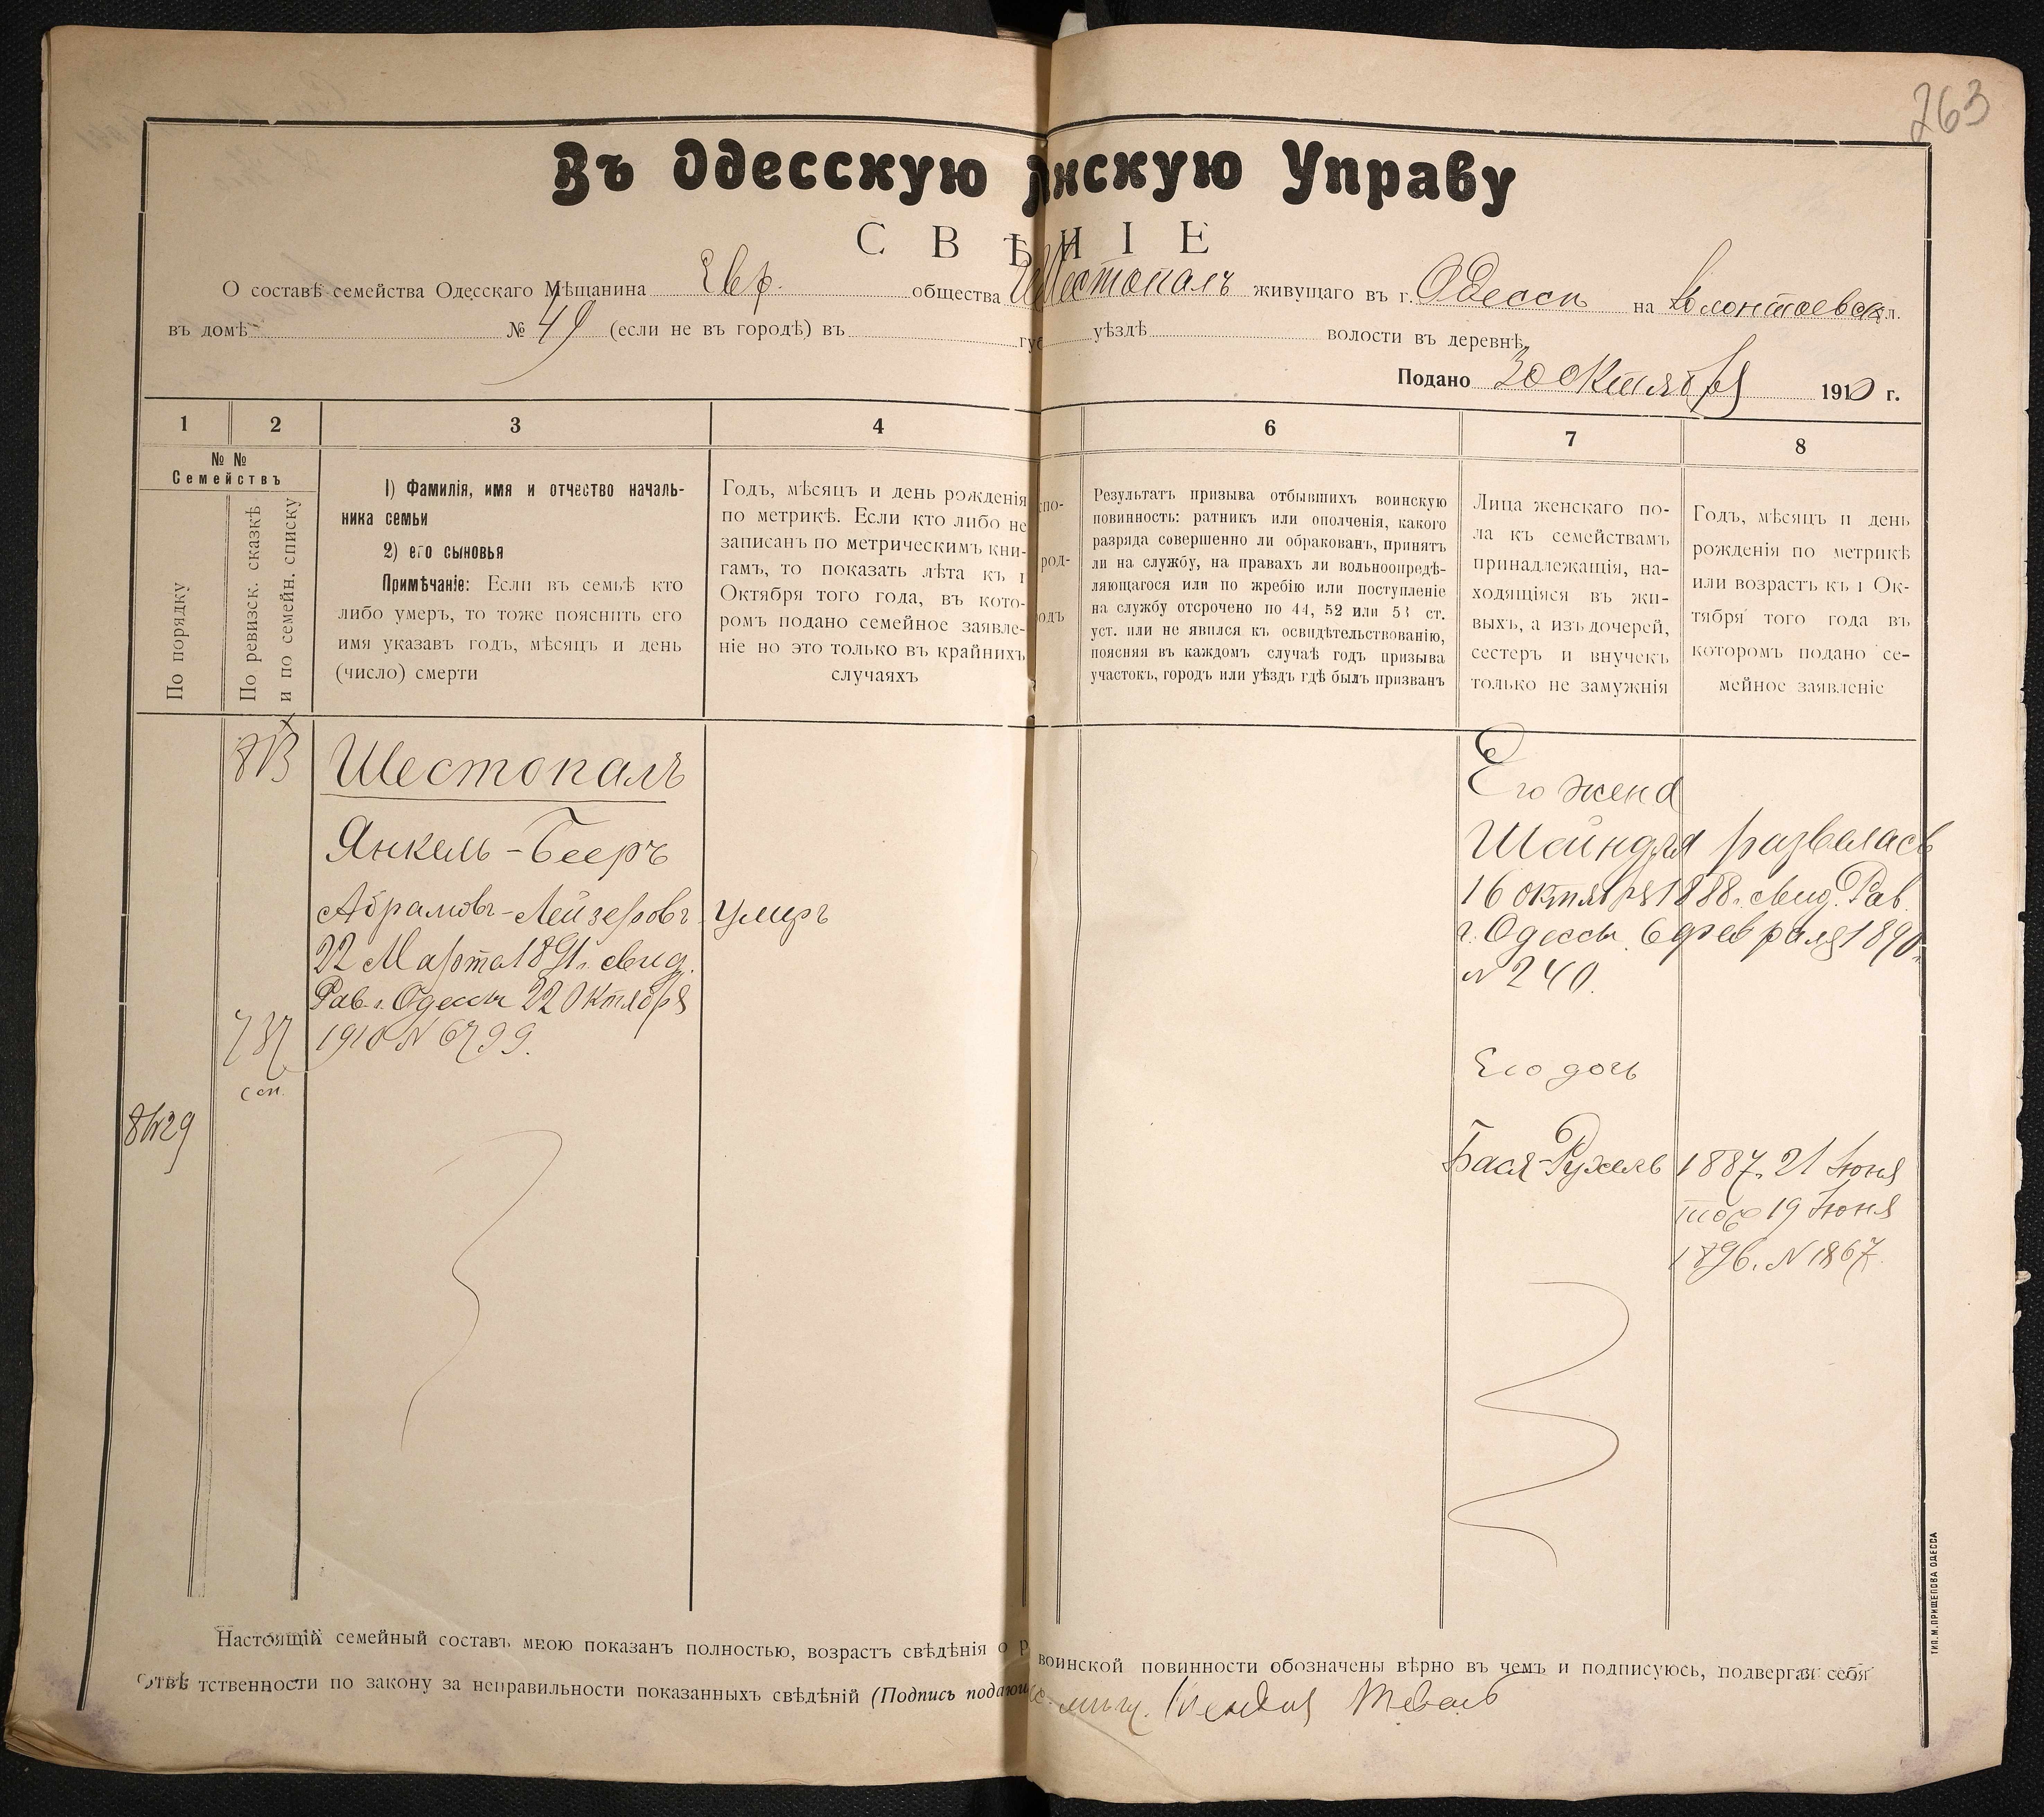 263
Въ Одесскую нскую Управу
СВѢНІЕ
О составѣ семейства Одесскаго Мѣщанина Евр. общества Шестопалъ живущаго въ г. Одессѣ на Колонтаевск ул.
въ домѣ № 49 (если не въ городѣ) въ гу уѣздѣ волости въ деревнѣ
Подано 30 октября 1910 г.
1 2 3 4 6 7 8
№ №
Семействъ
По порядку
По ревизск. сказкѣ
и по семейн. списку
1) Фамилія, имя и отчество началь-
ника семьи
2) его сыновья
Примѣчаніе: Если въ семьѣ кто
либо умеръ, то тоже пояснить его
имя указавъ годъ, мѣсяцъ и день
(число) смерти
Годъ, мѣсяцъ и день рожденія
по метрикѣ. Если кто либо не
записанъ по метрическимъ кни-
гамъ, то показать лѣта къ 1
Октября того года, въ кото-
ромъ подано семейное заявле-
ніе но это только въ крайнихъ
случаяхъ
спо-
род-
одъ
Результатъ призыва отбывшихъ воинскую
повинность: ратникъ или ополченія, какого
разряда совершенно ли обракованъ, принятъ
ли на службу, на правахъ ли вольноопредѣ-
ляющагося или по жребію или поступленіе
на службу отсрочено по 44, 52 или 53 ст.
уст. или не явился къ освидѣтельствованію,
поясняя въ каждомъ случаѣ годъ призыва
участокъ, городъ или уѣздъ гдѣ былъ призванъ
Лица женскаго по-
ла къ семействамъ
принадлежащія, на-
ходящіяся въ жи-
выхъ, а изъ дочерей,
сестеръ и внучекъ
только не замужнія
Годъ, мѣсяцъ и день
рожденія по метрикѣ
или возрастъ къ 1 Ок-
тября того года въ
которомъ подано се-
мейное заявленіе
Шестопалъ
Янкель-Бееръ
Абрамовъ-Лейзеровъ умеръ
22 Марта 1891 г. свид.
Рав. г. Одессы 22 Октября
1910 N 6799.
737
сп.
Его жена
Шейндля развелась
16 октября 1888 г. свид. Рав.
г. Одессы 6 февраля 1890 г.
N 240.
Его дочь
Бася-Рухель 1887 г. 21 Іюня
19 Іюня
1896 г. N 1867.
Настоящій семейный составъ мною показанъ полностью, возрастъ свѣдѣнія о р воинской повинности обозначены вѣрно въ чемъ и подписуюсь, подвергая себя
отвѣтственности по закону за неправильности показанныхъ свѣдѣній (Подпись подающ
ТИП. М. ПРИЩЕПОВА ОДЕССА